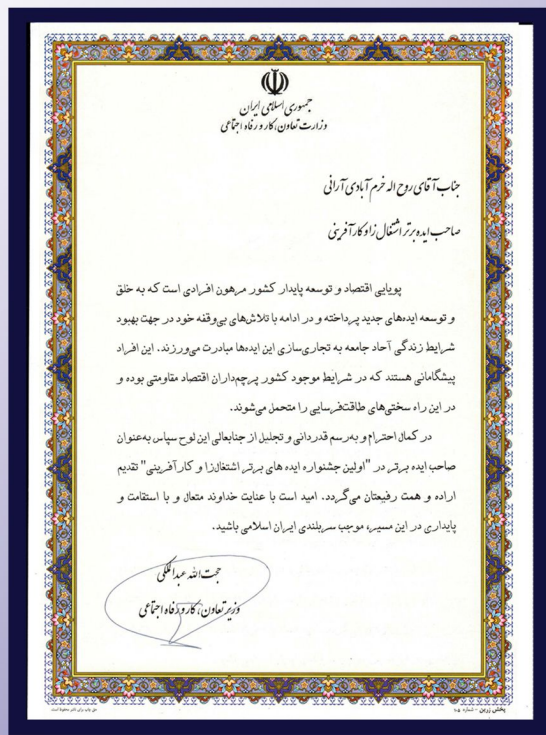 جمهوری اسلامی ایران
وزارت تعاون، کار و رفاه اجتماعی
جناب آقای روح اله خرم آبادی آرانی
صاحب ایده برتر اشتغال زا و کارآفرینی
پویایی اقتصاد و توسعه پایدار کشور مرهون افرادی است که به خلق
و توسعه ایده‌های جدید پرداخته و در ادامه با تلاش‌های بی‌وقفه خود در جهت بهبود
شرایط زندگی آحاد جامعه به تجاری‌سازی این ایده‌ها مبادرت می‌ورزند. این افراد
پیشگامانی هستند که در شرایط موجود کشور پرچم‌داران اقتصاد مقاومتی بوده و
در این راه سختی‌های طاقت‌فرسایی را متحمل می‌شوند.
در کمال احترام و به‌رسم قدردانی و تجلیل از جنابعالی این لوح سپاس به‌عنوان
صاحب ایده برتر در "اولین جشنواره ایده های برتر اشتغال‌زا و کارآفرینی" تقدیم
اراده و همت رفیعتان می‌گردد. امید است با عنایت خداوند متعال و با استقامت و
پایداری در این مسیر، موجب سربلندی ایران اسلامی باشید.
حجت الله عبدالملکی
وزیر تعاون، کار و رفاه اجتماعی
پخش زرین - شماره ۱۰۵
حق چاپ برای ناشر محفوظ است